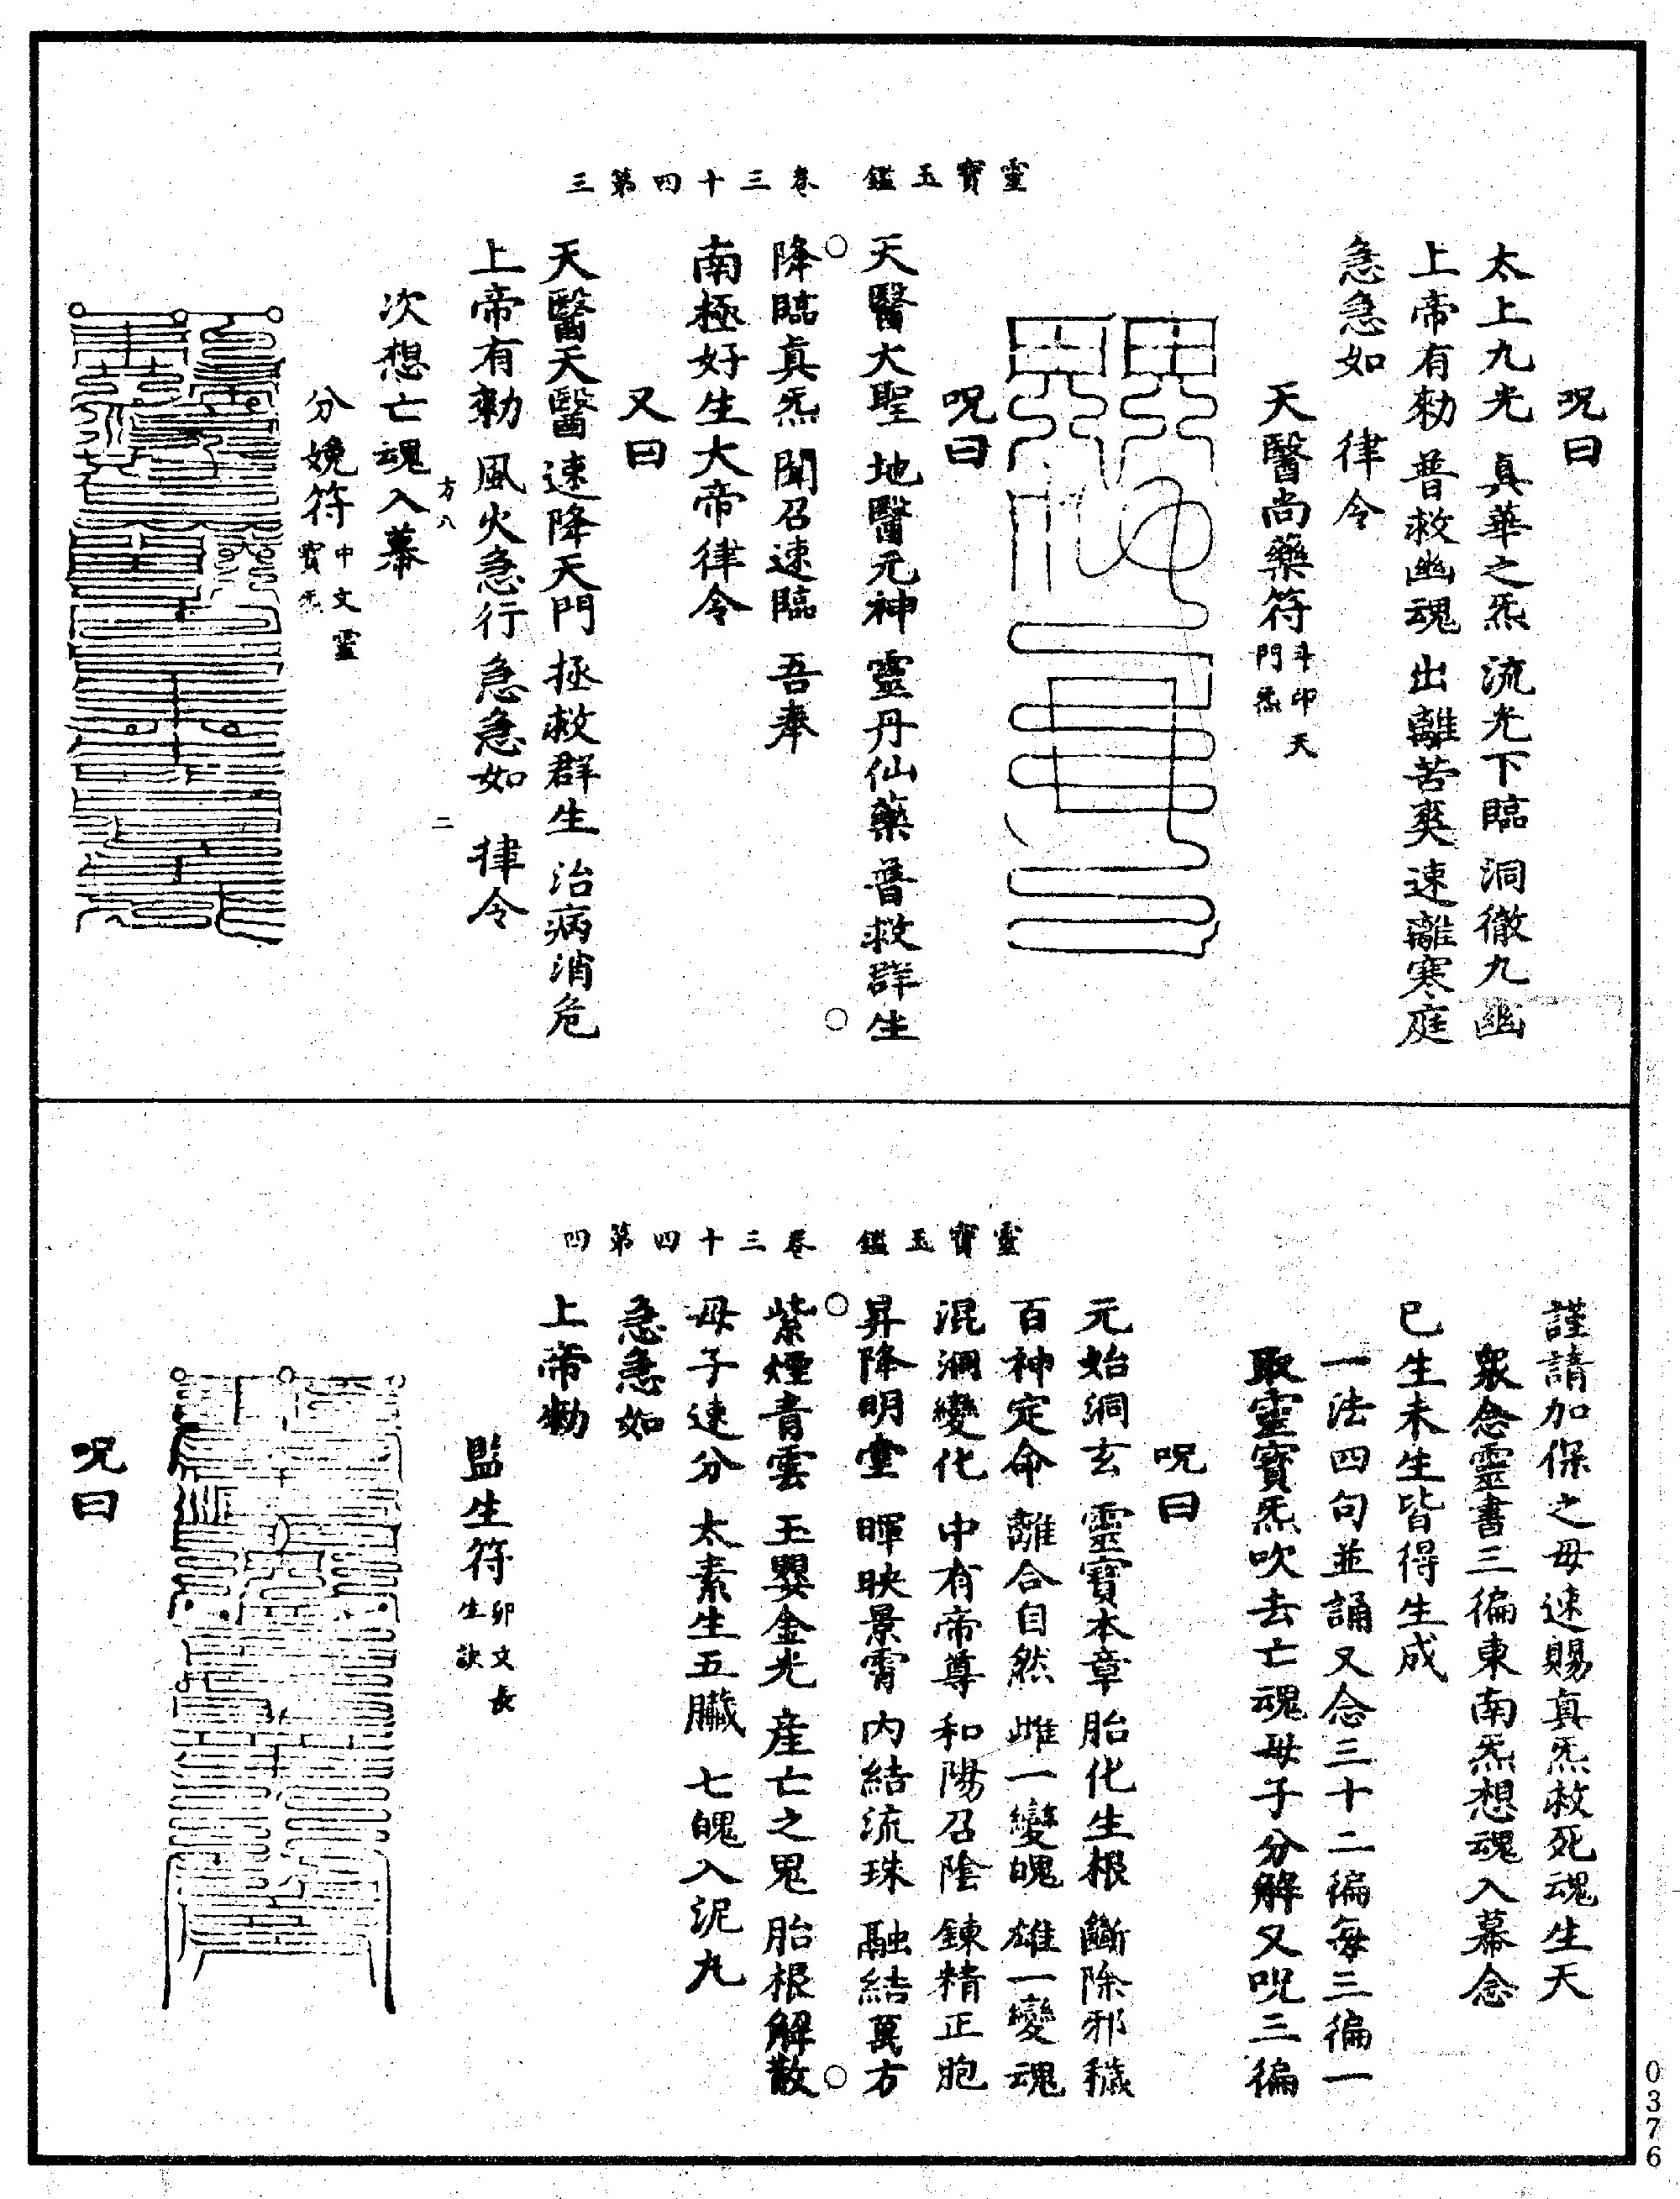 呪曰
太上九光　真華之炁　流光下臨　洞徹九幽
上帝有勑　普救幽魂　出離苦爽　速離寒庭
急急如　律令
天醫尚藥符
斗印天
門炁
呪曰
天醫大聖　地醫元神　靈丹仙藥　普救群生
降臨真炁　聞召速臨　吾奉
南極好生大帝律令
靈寶玉鑑　卷三十四第三
又曰
天醫天醫　速降天門　拯救群生　治病消危
上帝有勑　風火急行　急急如　律令
方八　二
次想亡魂入幕
分娩符
中文靈
寶炁
謹請加保之母速賜真炁救死魂生天
衆念靈書三徧東南炁想魂入幕念
已生未生皆得生成
一法四句並誦又念三十二徧每三徧一
取靈寶炁吹去亡魂母子分解又呪三徧
呪曰
元始洞玄　靈寶本章　胎化生根　斷除邪穢
百神定命　離合自然　雌一變魄　雄一變魂
混洞變化　中有帝尊　和陽召陰　鍊精正胞
昇降明堂　暉映景霄　内結流珠　融結萬方
紫煙青雲　玉嬰金光　産亡之鬼　胎根解散
母子速分　太素生五臟　七魄入泥丸
靈寶玉鑑　卷三十四第四
急急如
上帝勑
監生符
卯文長
生訣
呪曰
0376